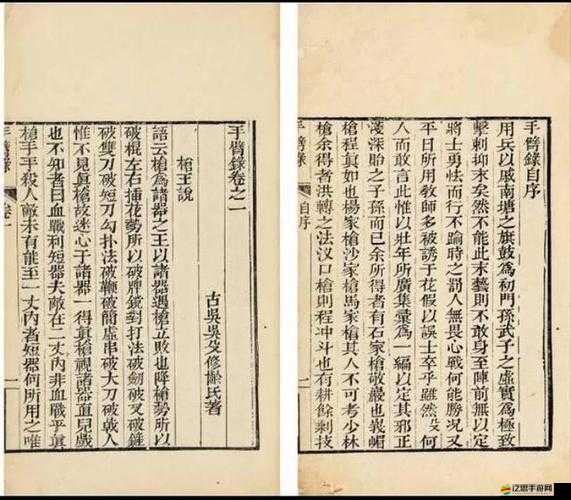 手臂錄自序
用兵以戚南塘之旗鼓爲初門孫武子之虛實爲極致
擊刺抑末矣然不能此末藝則不敢身至陣前無以定
將士勇怯而行不踰時之罰人無畏心戰何能勝况又
平日所用教師多被誘于花假以誤士卒乎雖然殳何
人而敢言此惟以壯年所廣集彙爲一編以定其邪正
淺深胎之子孫而已余所得者有石家槍敬巖也峩嵋
槍程眞如也楊家槍沙家槍馬家槍其人不可考少林
槍余得者洪轉之法汊口槍則程冲斗也有耕餘剩技
手臂錄
自序
一
手臂錄卷之一
古吳吳殳修齡氏著
槍王說
語云槍爲諸器之王以諸器遇槍立敗也降槍勢所以
破棍左右插花勢所以破牌鏜對打法破劍破叉破鏟
破雙刀破短刀勾扑法破鞭破簡虛串破大刀破戟人
惟不見眞槍故迷心于諸器一得眞槍視諸器直兒戲
也不知者曰血戰利短器夫敵在二丈內非血戰乎眞
槍手手殺人敵未有能至一丈內者短器何所用之唯
手臂錄
卷一
一
亿思手游网